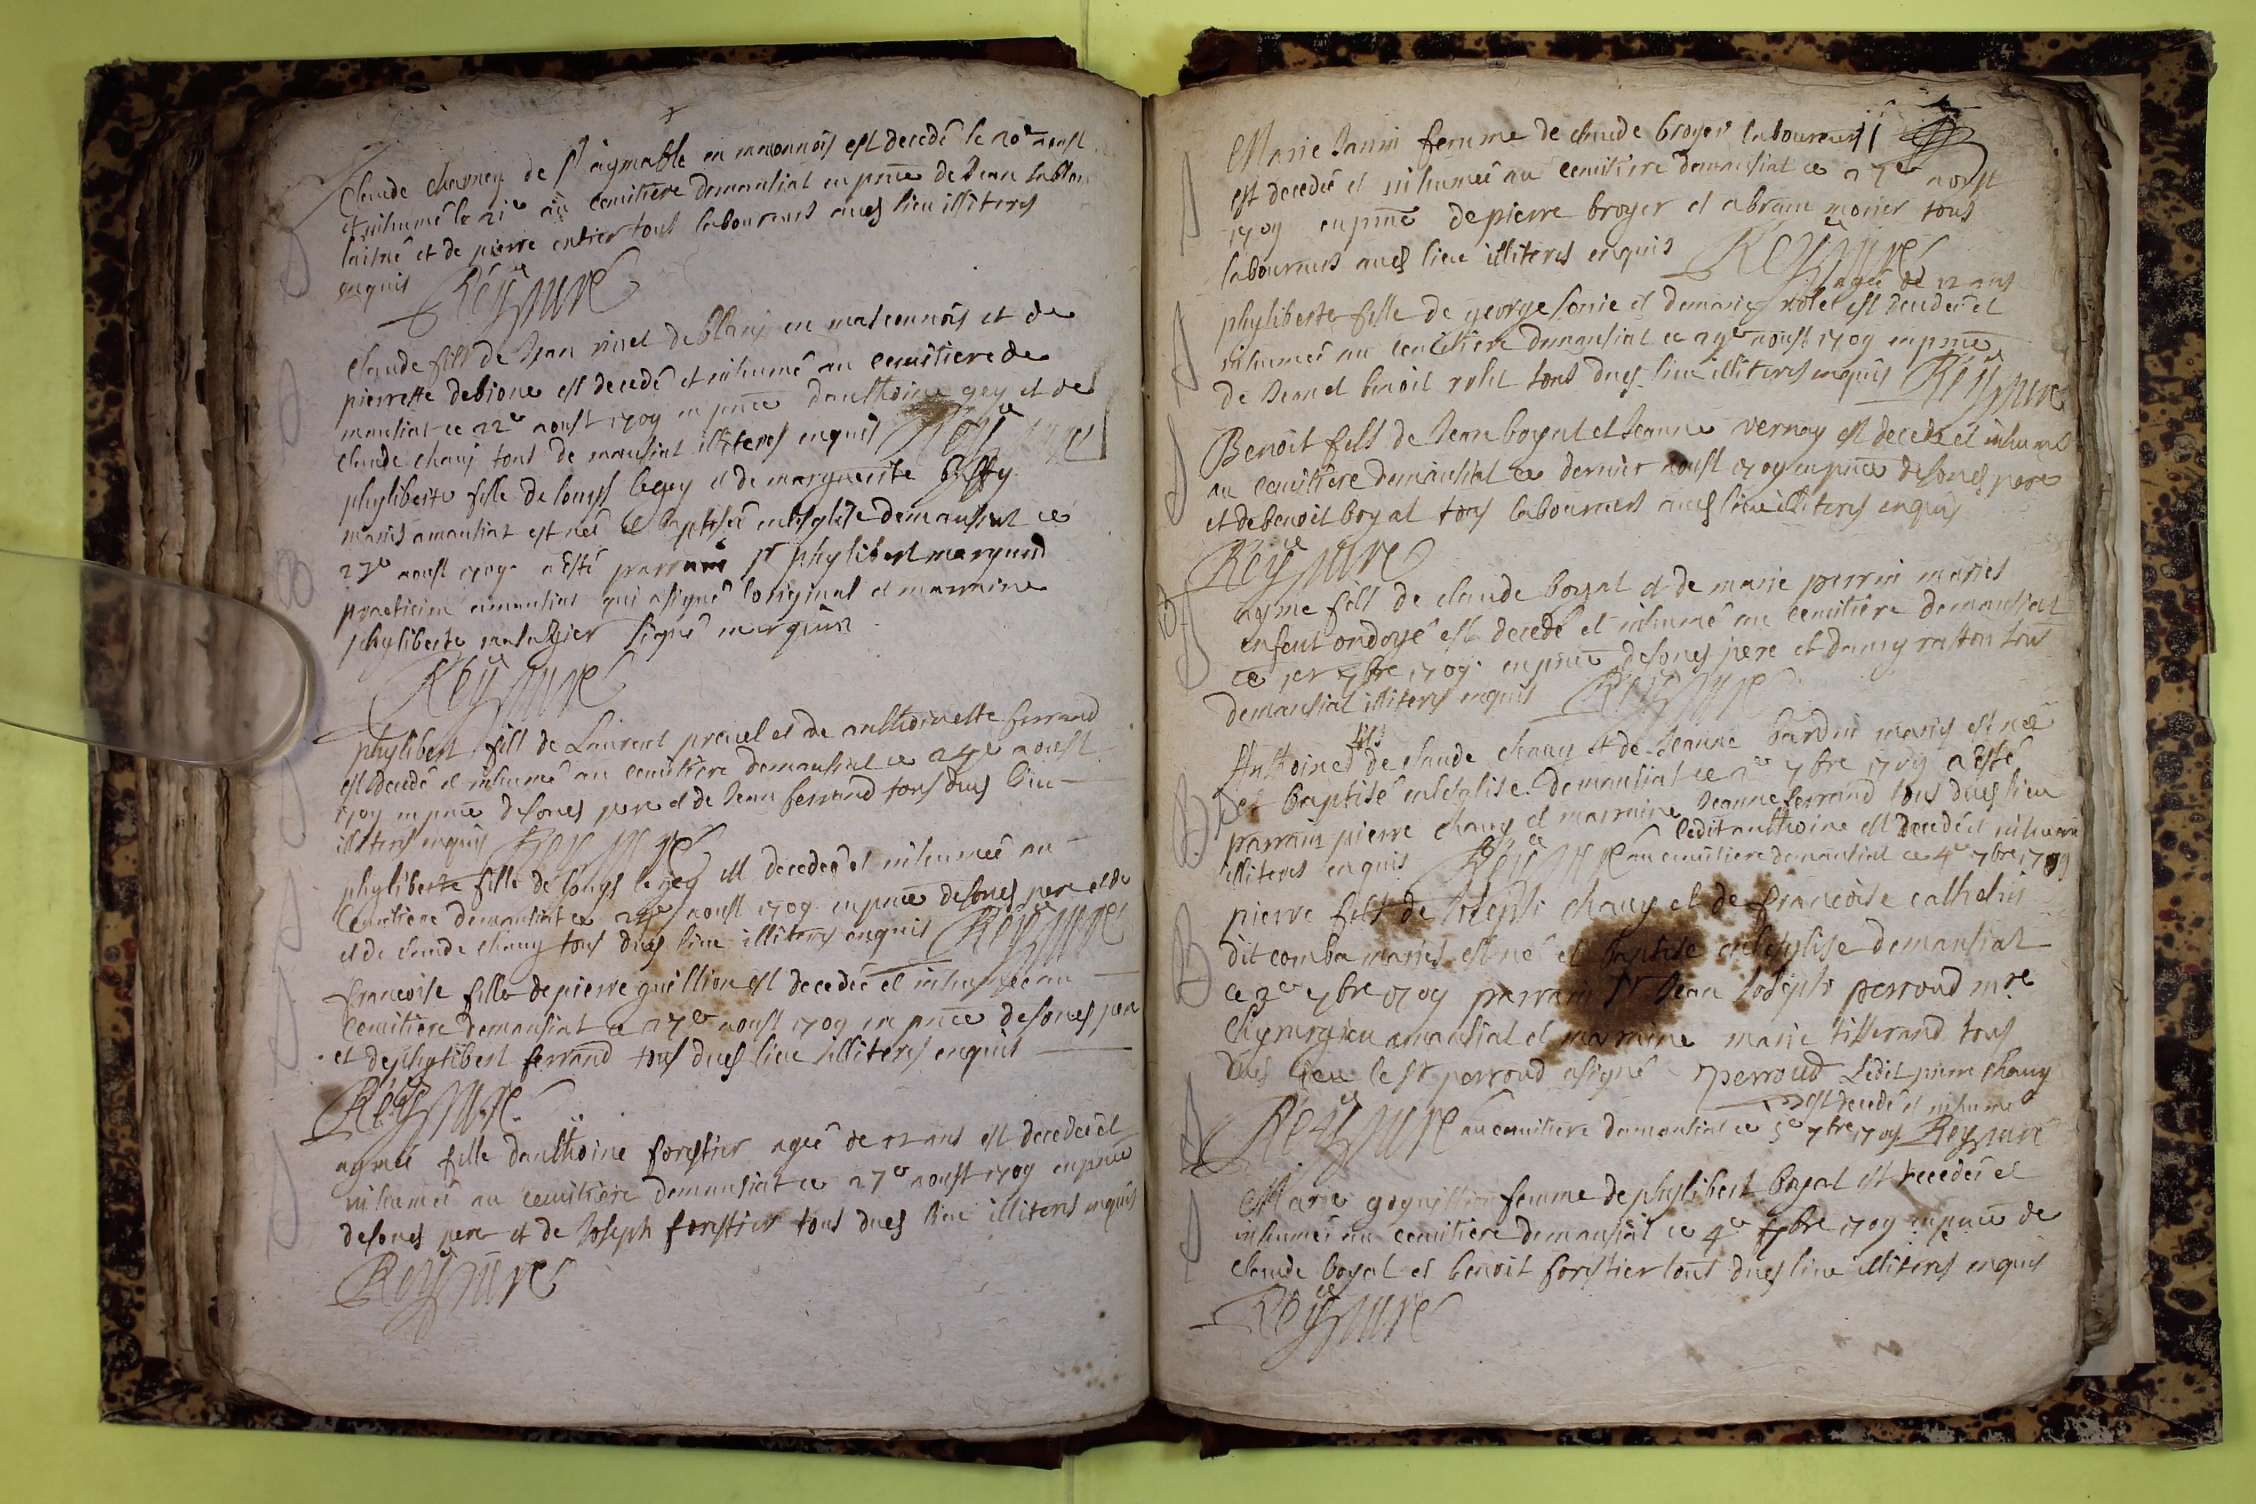 Claude charney de st aymable en maconnois est decedé le 20e aoust
et inhumé le 21e au cemitiere demansiat en pnce de Jean
laisné et de pierre tous laboureurs aud lieu illiteres
enquis Rey curé
Claude fils de Jean de blany en masconnois et de
pierrette debione est decedé et inhumé au cemitiere de
mansiat ce 22e aoust 1709 en pnce danthoine gey et de
claude chauy tous de mansiat illiteres enquis Rey curé
phyliberte fille de louys legey et de marguerite
mariés amansiat est née et baptisée enlesglise demansiat ce
23e aoust 1709 a esté parrain sr phylibert marguin
practicien amansiat qui asigné loriginal et marraine
phyliberte signé marguin
Rey curé
phylibert fils de Laurent preuel et de anthoinette ferrand
est decedé et inhumé au cemitiere demansiat ce 24e aoust
1709 en pnce desond pere et de Jean ferrand tous dud lieu
illiteres enquis Rey curé
phyliberte fille de louys legey est decedée et inhumée au
cemitiere demansiat ce aoust 1709 en pnce desond pere et de
et de claude chauy tous dud lieu illiteres enquis Rey curé
francoise fille de pierre guillion est decedée et inhumée au
cemitiere demansiat ce 27e aoust 1709 en pnce desond pere
et dephylibert ferrand tous dud lieu illiteres enquis
Rey curé
aymée fille danthoine forestier agée de 12 ans est decedée et
inhumée au cemitiere demansiat ce 27e aoust 1709 en pnce
desond pere et de Joseph forestier tous dud lieu illiteres enquis
Rey curé
Marie Janin femme de claude broyer laboureur
est decedée et inhumée au cemitiere demansiat ce 27e aoust
1709 en pnce de pierre broyer et abram monier tous
laboureurs aud lieu illiteres enquis Rey curé
agée de 12 ans
phyliberte fille de george et demarie rolet est decedée et
inhumée au cemitiere demansiat ce 29e aoust 1709 en pnce
de Jean et benoit rolet tous dud lieu illiteres enquis Rey curé
Benoit fils de Jean boyat et Jeanne vernay est decedé et inhumé
au cemitiere demansiat ce dernier aoust 1709 en pnce desond pere
et de benoit boyat tous laboureurs aud lieu illiteres enquis
Rey curé
ayme fils de claude boyat et de marie perrin mariés
enfant ondoyé est decedé et inhumé au cemitiere demansiat
ce 1er 7bre 1709 en pnce desond pere et damy ratton tous
demansiat illiteres enquis Rey curé
Anthoine fils de claude chauy et de Jeanne bardin mariés est né
et baptisé enlesglise demansiat ce 2e 7bre 1709 a esté
parrain pierre chauy et marraine Jeanne ferrand tous dud lieu
illiteres enquis Rey curé ledit anthoine est decedé et inhumé
au cemitiere demansiat ce 4e 7bre 1709
pierre fils de Joseph chauy et de francoise cathelin
dit comba mariés est né et baptisé enlesglise demansiat
ce 3e 7bre 1709 parrain sr Jean Joseph perroud mre
chyrurgien amansiat et marraine marie tisserand tous
dud lieu le sr perroud asigné perroud Ledit pierre chauy
est decedé et inhumé
Rey curé au cemitiere demansiat ce 5e 7bre 1709 Rey curé
Marie goguillion femme de phylibert boyat est decedée et
inhumée au cemitiere demansiat ce 4e 7bre 1709 en pnce de
claude boyat et benoit forestier tous dud lieu illiteres enquis
Rey curé